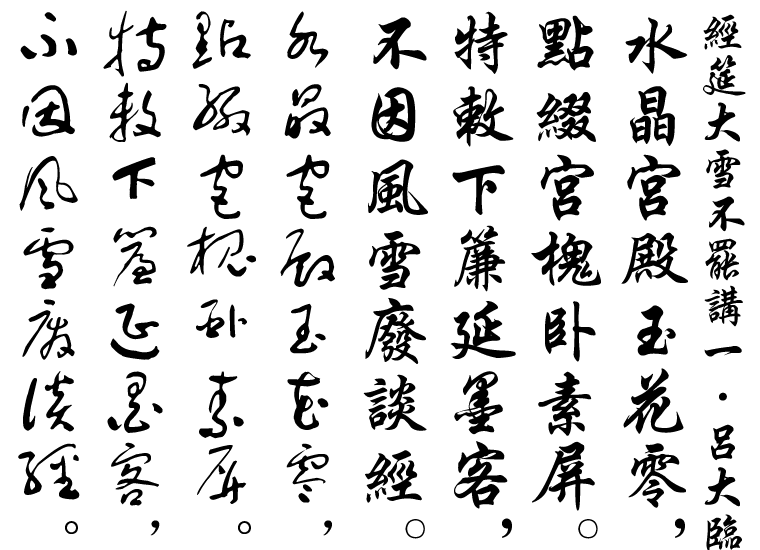 經筵大雪不罷講一・呂大臨
水晶宮殿玉花零，
點綴宮槐卧素屏。
特敕下簾延墨客，
不因風雪廢談經。
水晶宮殿玉花零，
點綴宮槐卧素屏。
特敕下簾延墨客，
不因風雪廢談經。